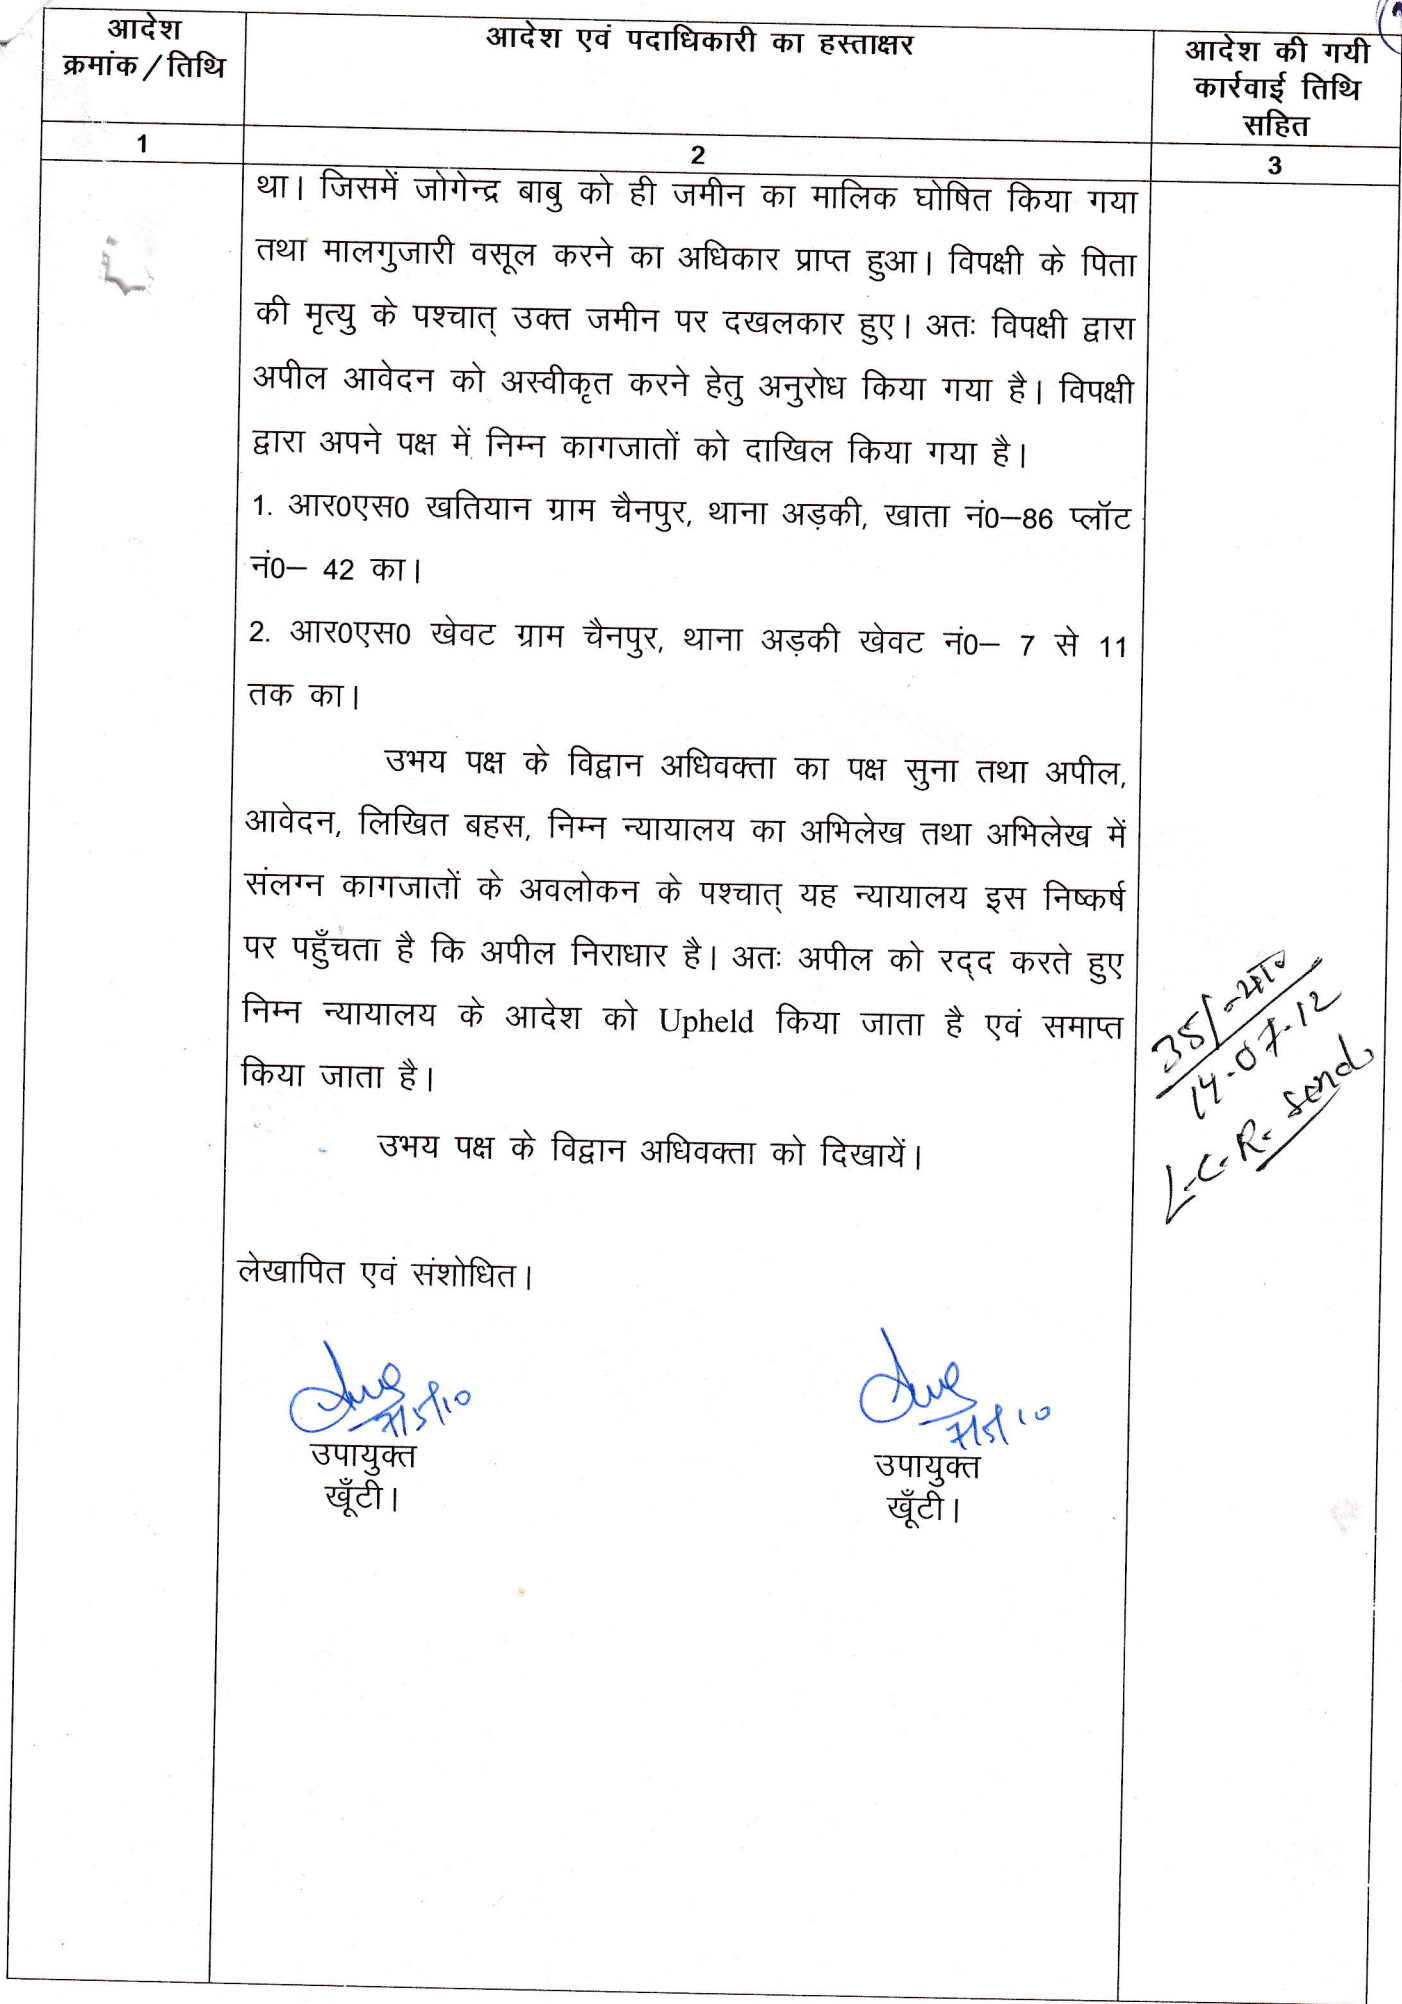 आदेश
क्रमांक / तिथि
आदेश एवं पदाधिकारी का हस्ताक्षर
आदेश की गयी
कार्रवाई तिथि
सहित
1
2
3
था। जिसमें जोगेन्द्र बाबु को ही जमीन का मालिक घोषित किया गया
तथा मालगुजारी वसूल करने का अधिकार प्राप्त हुआ। विपक्षी के पिता
की मृत्यु के पश्चात् उक्त जमीन पर दखलकार हुए। अतः विपक्षी द्वारा
अपील आवेदन को अस्वीकृत करने हेतु अनुरोध किया गया है। विपक्षी
द्वारा अपने पक्ष में निम्न कागजातों को दाखिल किया गया है।
1. आर0एस0 खतियान ग्राम चैनपुर, थाना अड़की, खाता नं0–86 प्लॉट
नं0– 42 का।
2. आर0एस0 खेवट ग्राम चैनपुर, थाना अड़की खेवट नं0– 7 से 11
तक का।
उभय पक्ष के विद्वान अधिवक्ता का पक्ष सुना तथा अपील,
आवेदन, लिखित बहस, निम्न न्यायालय का अभिलेख तथा अभिलेख में
संलग्न कागजातों के अवलोकन के पश्चात् यह न्यायालय इस निष्कर्ष
पर पहुँचता है कि अपील निराधार है। अतः अपील को रद्द करते हुए
निम्न न्यायालय के आदेश को Upheld किया जाता है एवं समाप्त
किया जाता है।
उभय पक्ष के विद्वान अधिवक्ता को दिखायें।
35/-
14-07-12
L.C.R. send
लेखापित एवं संशोधित।
7/5/10
उपायुक्त
खूँटी।
7/5/10
उपायुक्त
खूँटी।